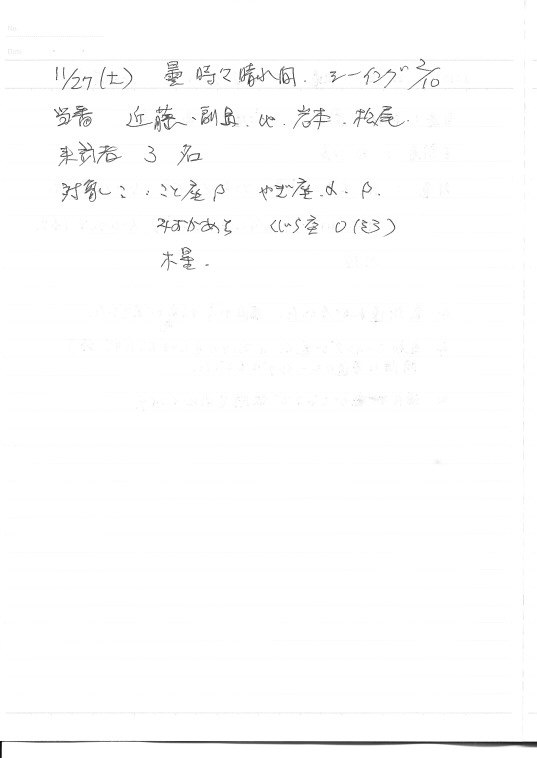 11/27(土) 曇時々晴れ間. シーイング 2/10
当番 近藤、副島、岩本、松尾.
来訪者 3名
対象 こと座β やぎ座.α.β.
みずがめζ くじら座 ο(ミラ)
木星.